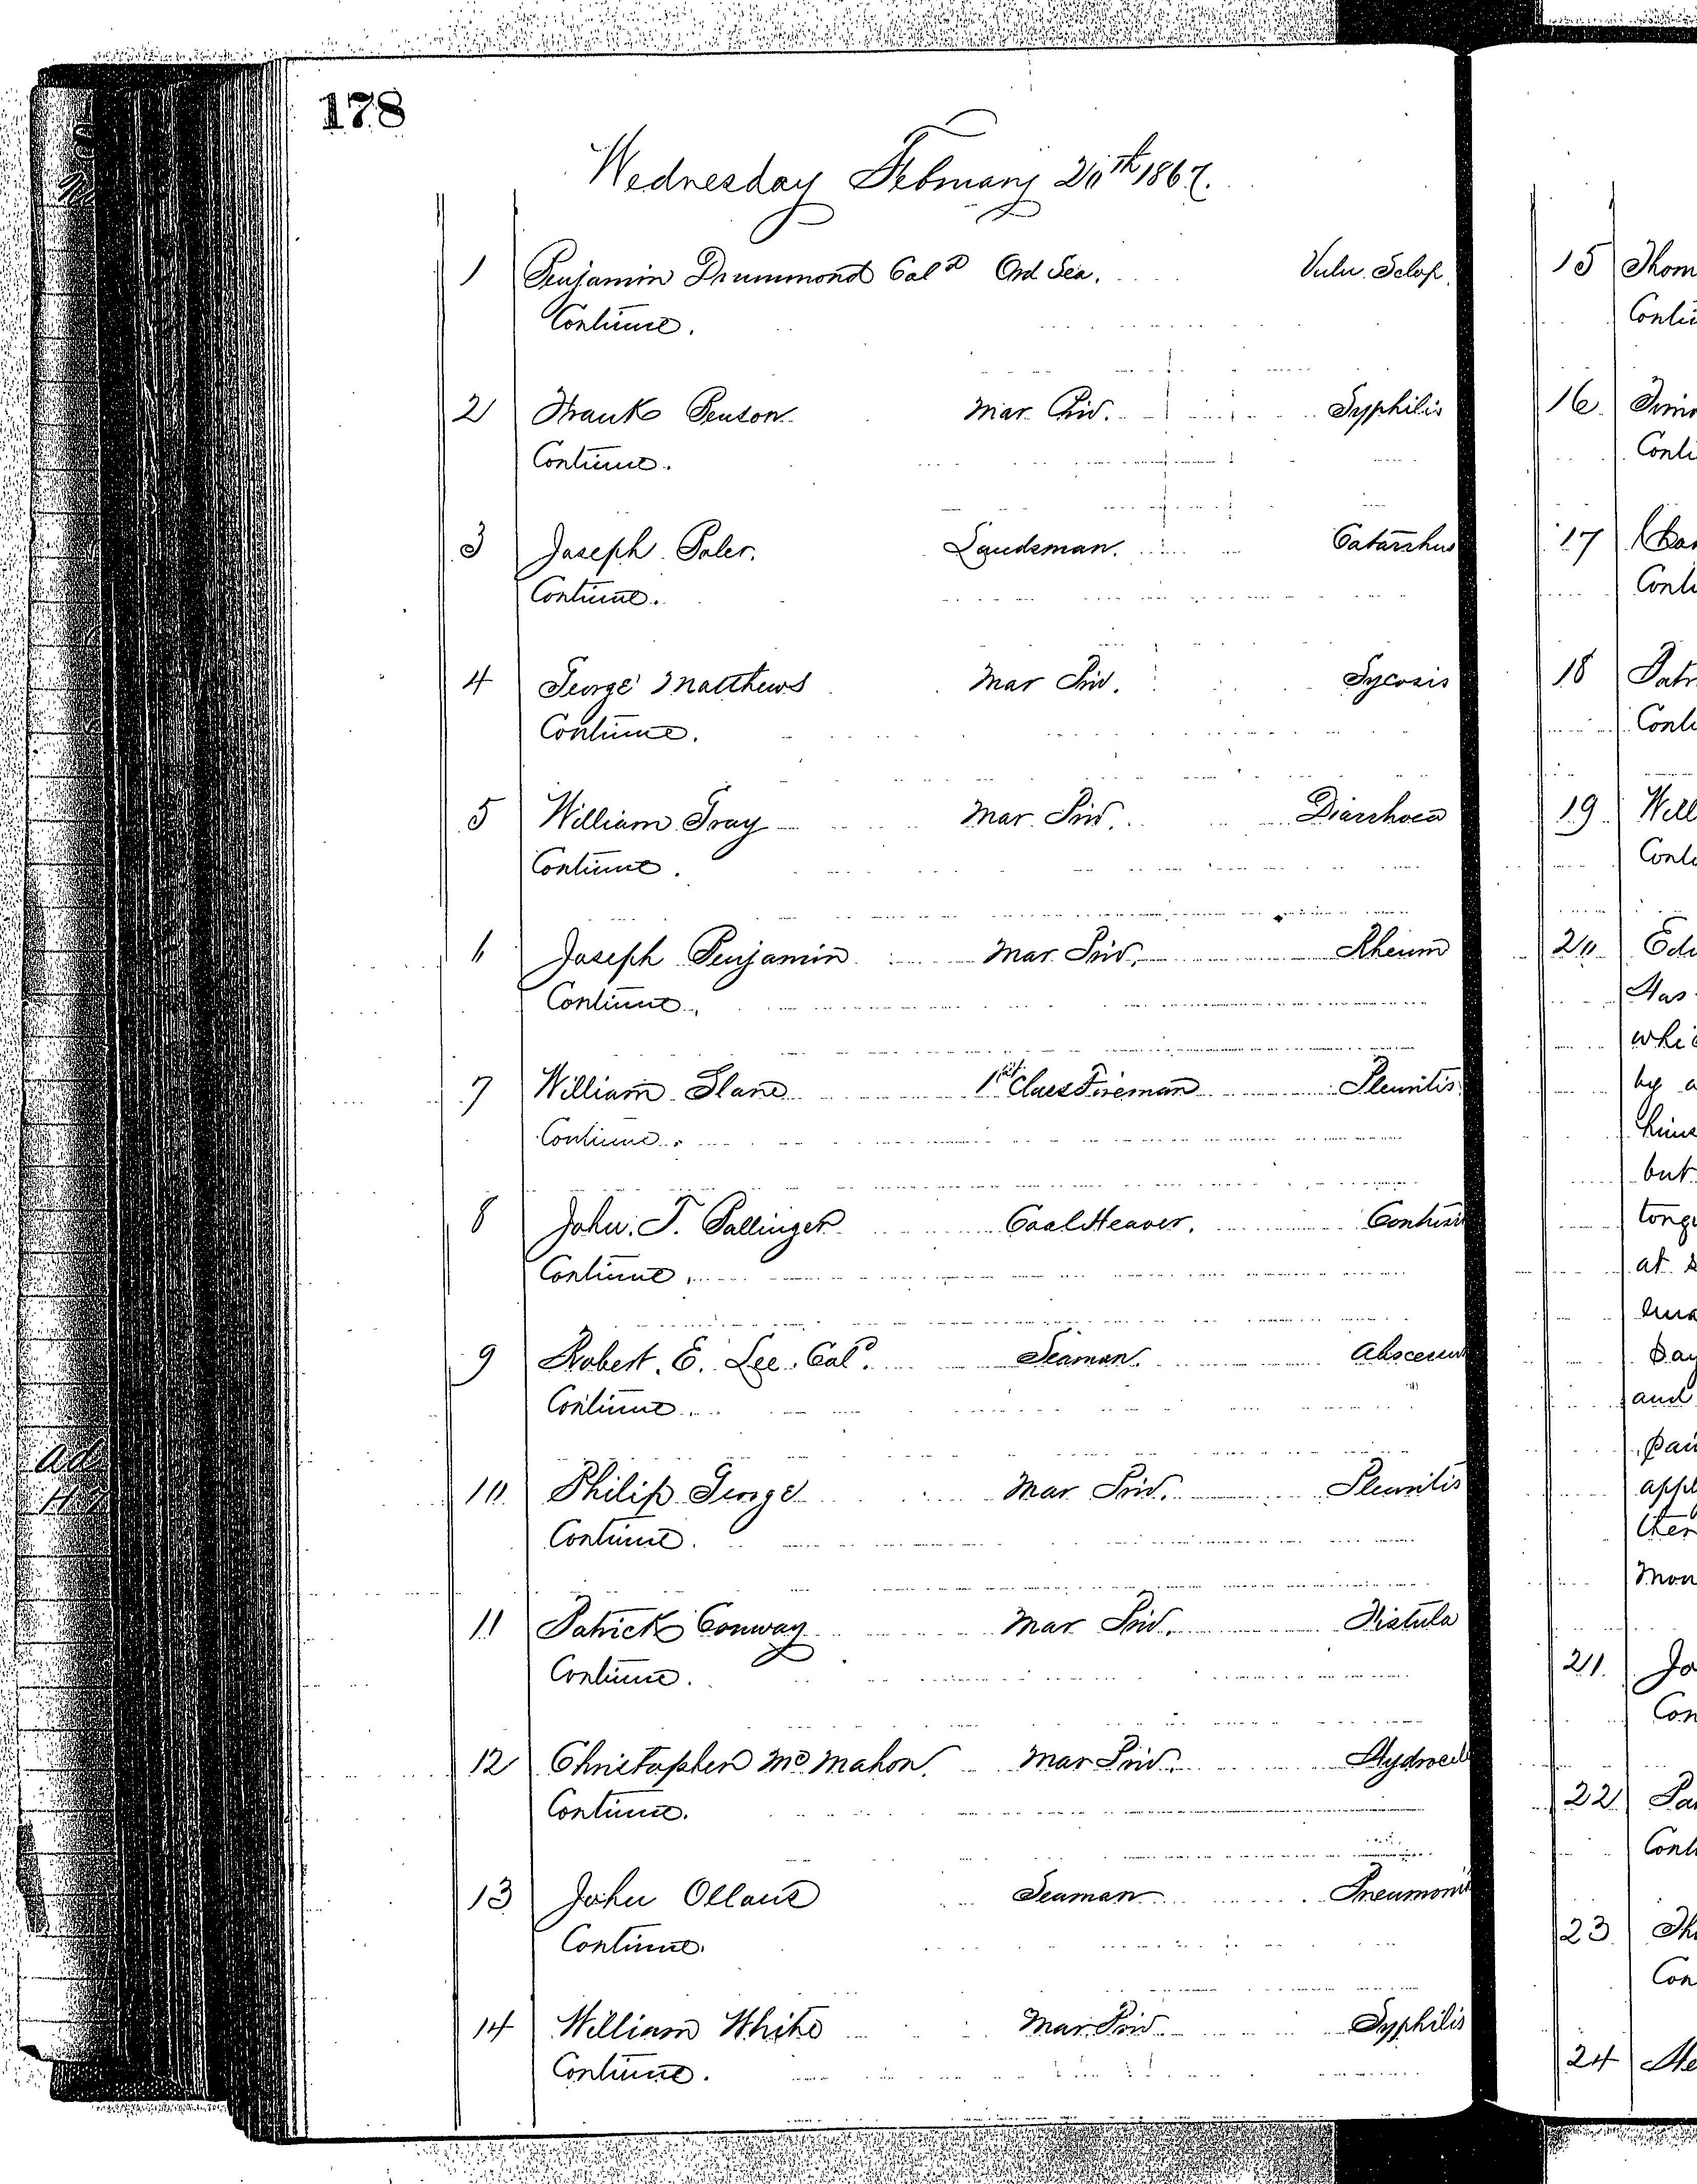 178
Wednesday February 20th 1867.
1 Benjamin Drummond Cold Ord Sea. Vuln. Sclop.
Continue.
2 Frank Benson Mar Priv. Syphilis
Continue.
3 Joseph Boler. Landsman. Catarrhus
Continue.
4 George Matthews Mar Priv. Sycosis
Continue.
5 William Gray Mar. Priv. Diarrhoea
Continue.
6 Joseph Benjamin Mar Priv. Rheum
Continue.
7 William Slane 1st Class Fireman Pleuritis
Continue.
8 John. T. Ballinger Coal Heaver. Contusi
Continue.
9 Robert. E. Lee. Cold. Seaman. Abscessus
Continue.
10 Philip George Mar Priv. Pleuritis
Continue.
11 Patrick Conway Mar Priv. Fistula
Continue.
12 Christopher McMahon. Mar Priv. Hydrocele
Continue.
13 John Ollaus Seaman Pneumonia
Continue.
14 William White Mar Priv. Syphilis
Continue.
15 Thom
Conti
16
Conti
17
Conti
18 Patr
Conti
19 Will
Conti
20 Edw
Has
whic
by a
hims
but
tong
at s
day
and
pai
appl
ther
mon
21 Jo
Con
22 Pa
Conti
23 Th
Con
24 He